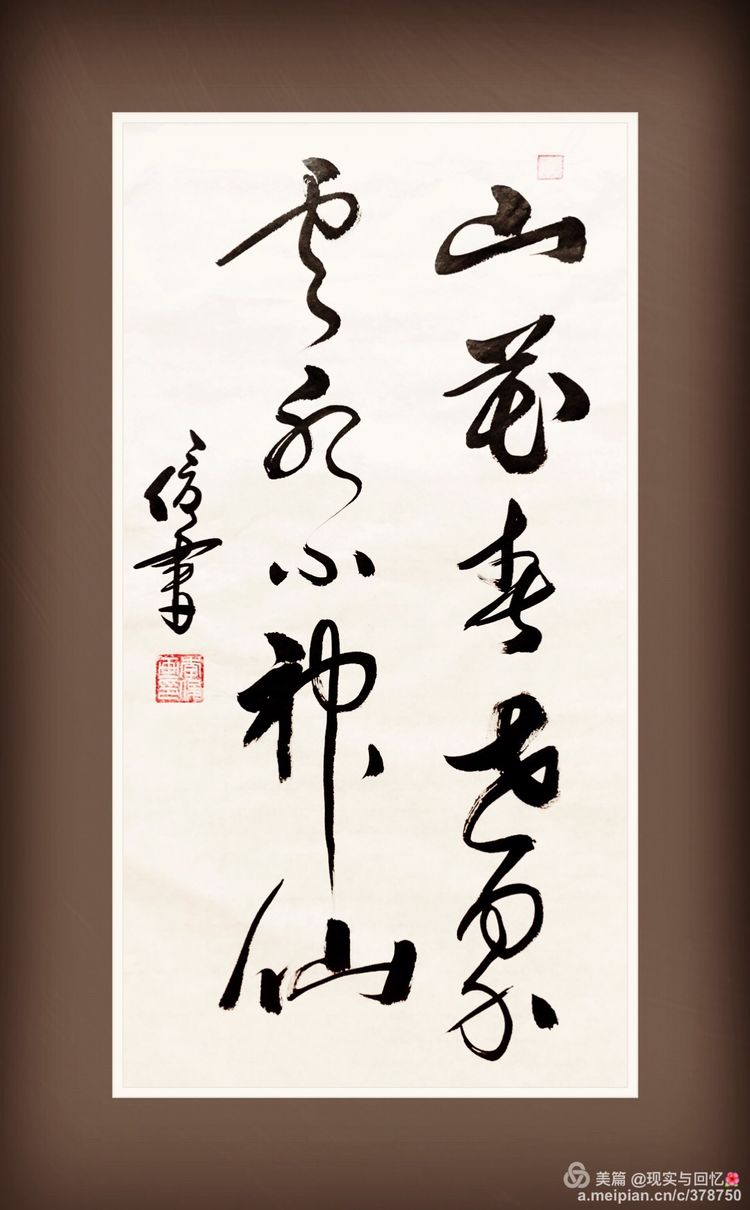 山花春世界
雲水小神仙
信書
美篇 @现实与回忆🌺
a.meipian.cn/c/378750